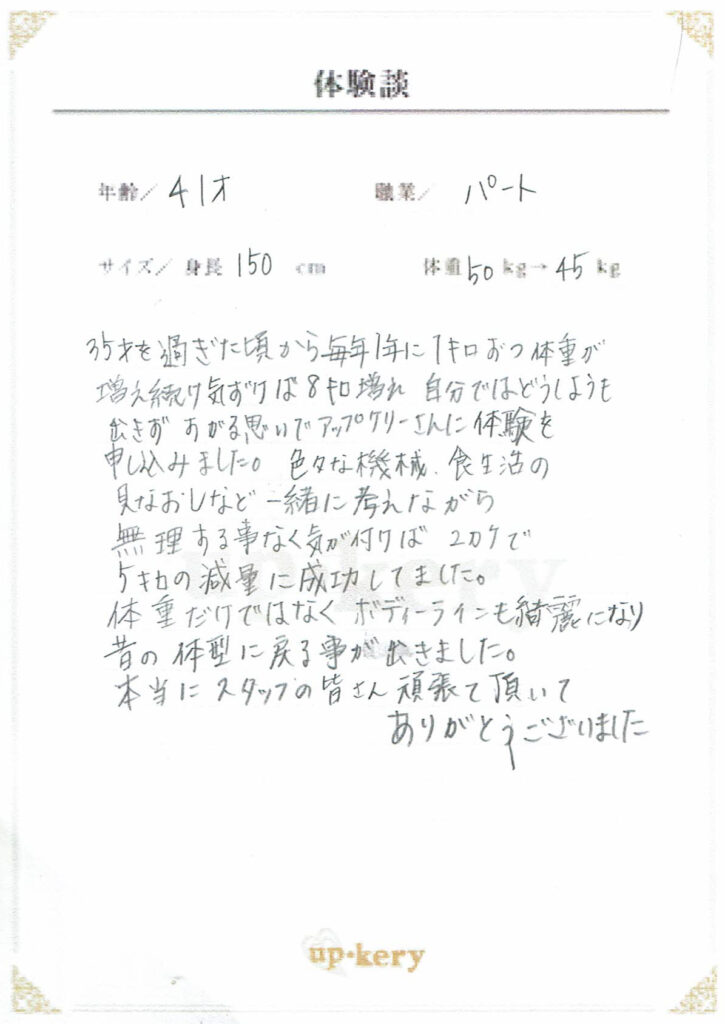 体験談
年齢／ 41才 職業／ パート
サイズ／ 身長 150 cm 体重 50 kg→ 45 kg
35才を過ぎた頃から毎年1年に1キロおつ体重が
増え続け気ずけば8キロ増れ 自分ではどうしようも
出きず すがる思いでアップケリーさんに体験を
申し込みました。 色々な機械、食生活の
見なおしなど一緒に考えながら
無理する事なく気が付けば 2カケで
5キロの減量に成功してました。
体重だけではなく ボディーラインも綺麗になり
昔の体型に戻る事が出きました。
本当にスタッフの皆さん頑張て頂いて
ありがとうございました
up・kery